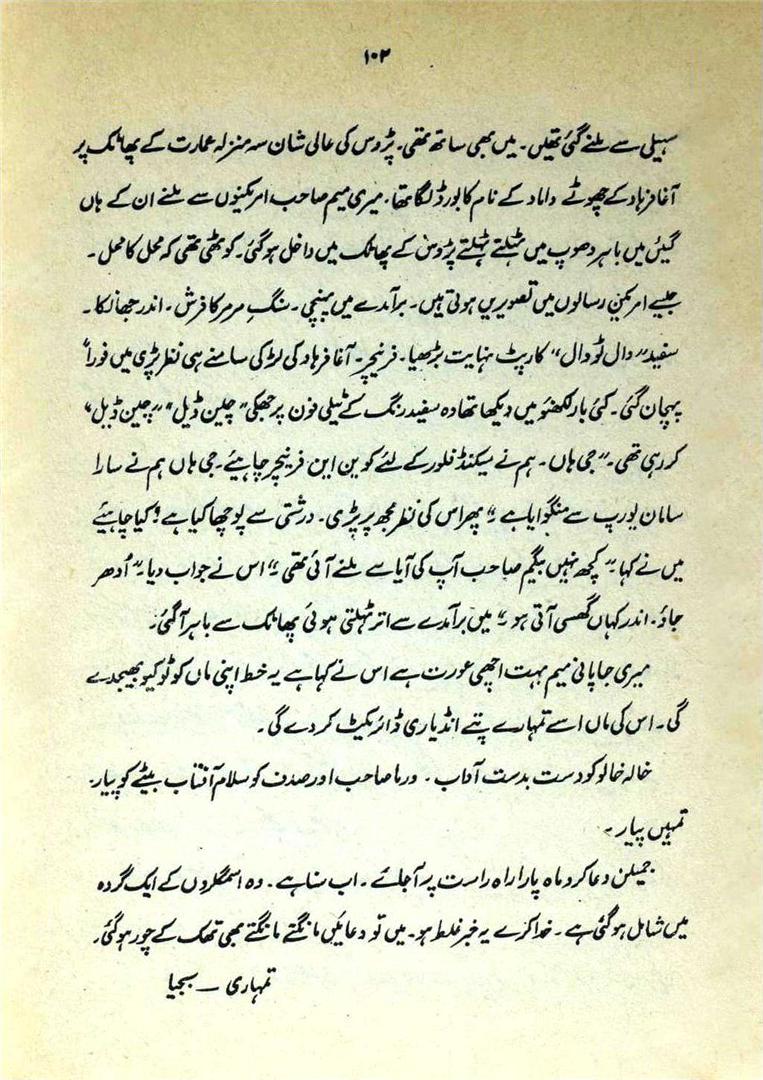 ۱۰۲
سہیلی سے ملنے گئی تھیں۔ میں بھی ساتھ تھی۔ پڑوس کی عالی شان سہ منزلہ عمارت کے پھاٹک پر
آغا فرہاد کے چھوٹے داماد کے نام کا بورڈ لگا تھا۔ میری میم صاحب امریکنوں سے ملنے ان کے ہاں
گیئں میں باہر دھوپ میں ٹہلتے ٹہلتے پڑوس کے پھاٹک میں داخل ہوگئی۔ کوٹھی تھی کہ محل کا محل۔
جیسے امریکن رسالوں میں تصویریں ہوتی ہیں۔ برآمدے میں پہنچی۔ سنگِ مرمر کا فرش۔ اندر جھانکا۔
سفید "وال ٹو وال" کارپٹ نہایت بڑھیا۔ فرنیچر۔ آغا فرہاد کی لڑکی سامنے ہی نظر پڑی میں فوراً
پہچان گئی۔ کئی بار لکھنؤ میں دیکھا تھا وہ سفید رنگ کے ٹیلی فون پر جھکی "چپن ڈیل" "چپن ڈیل"
کر رہی تھی۔ "جی ہاں۔ ہم نے سیکنڈ فلور کے لئے کوین این فرنیچر چاہیئے۔ جی ہاں ہم نے سارا
سامان یورپ سے منگوایا ہے" پھر اس کی نظر مجھ پر پڑی۔ درشتی سے پوچھا کیا ہے؟ کیا چاہیئے
میں نے کہا۔ "کچھ نہیں بیگم صاحب آپ کی آیا سے ملنے آئی تھی" اس نے جواب دیا۔ "اُدھر
جاؤ۔ اندر کہاں گھسی آتی ہو" میں برآمدے سے اتر ٹہلتی ہوئی پھاٹک سے باہر آگئی۔
میری جاپانی میم بہت اچھی عورت ہے اس نے کہا ہے یہ خط اپنی ماں کو ٹوکیو بھیجدے
گی۔ اس کی ماں اسے تمہارے پتے انڈیا ری ڈائریکٹ کر دے گی۔
خالہ خالو کو دست بدست آداب۔ ورما صاحب اور صدف کو سلام آفتاب بیٹے کو پیار۔
تمہیں پیار۔
جمیلن دعا کرو ماہ پارا راہ راست پر آجائے۔ اب سنا ہے۔ وہ اسمگلروں کے ایک گروہ
میں شامل ہوگئی ہے۔ خدا کرے یہ خبر غلط ہو۔ میں تو دعائیں مانگتے مانگتے بھی تھک کے چور ہوگئی۔
تمہاری — بجیا